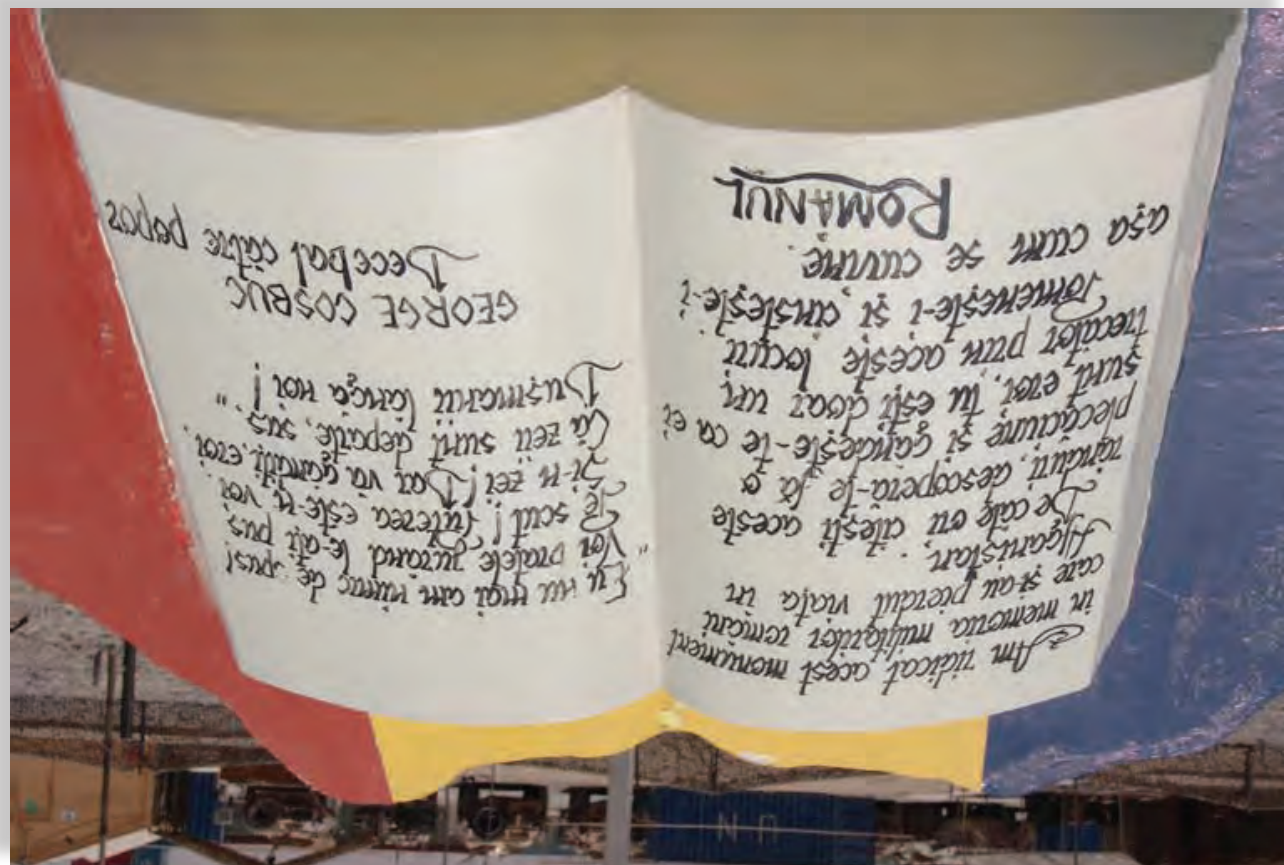 Am ridicat acest monument
în memoria militarilor români
care și-au pierdut viața în
Afganistan.
De câte ori citești aceste
rânduri, descoperă-te fă o
plecăciune și gândește-te ca ei
sunt eroi, tu ești doar un
trecător prin aceste locuri
Pomenește-i și cinstește-i
așa cum se cuvine.
ROMÂNUL
Eu nu mai am nimic de spus!
„Voi bratele jurând le-ați pus
Pe scut! Puterea este-n voi
Și-n zei! Dar vă gândiți, eroi,
Că zeii sunt departe, sus,"
Dușmanii lângă noi!
GEORGE COȘBUC
Decebal către popor
UN